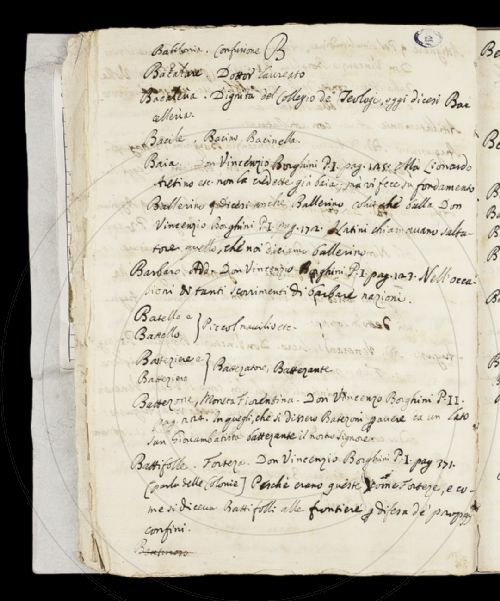 Babilonia. Confusione B
Bacalare. Dottor laureato
Bacaleria. Dignità del Collegio de' Teologi, oggi dicesi Bac
celleria.
Bacile, Bacino, Bacinella.
Baia, Don Vincenzio Borghini P. I. pag. Ma Lionardo
Aretino etc. non la credette già baia, ma vi fece su fondamento
Ballerino dicesi anche Ballerino, colui che balla Don
Vincenzio Borghini P. I. pag. 172. I Latini chiamavano salta
tore quello, che noi diciamo ballerino.
Barbaro Add. Don Vincenzio Borghini P. I. pag. 123. Nell'occa
sioni di tanti scorrimenti di barbare nazioni.
Batello e
Battello } Piccol navilio etc.
Battezziere e
Battezziero } Battezzatore, Battezzante
Battezzone, Moneta Fiorentina. Don Vincenzo Borghini P. II.
pag. In quegli, che si dissero Batezoni p avere da un lato
San Giovambatista battezzante il nostro Signore.
Battifolle. Fortezza. Don Vincenzio Borghini P. I. pag. 371.
[parla delle Colonie] Perchè erano queste come Fortezze, e co
me si diceva Battifolli alle frontiere p difesa de' proprj
confini.